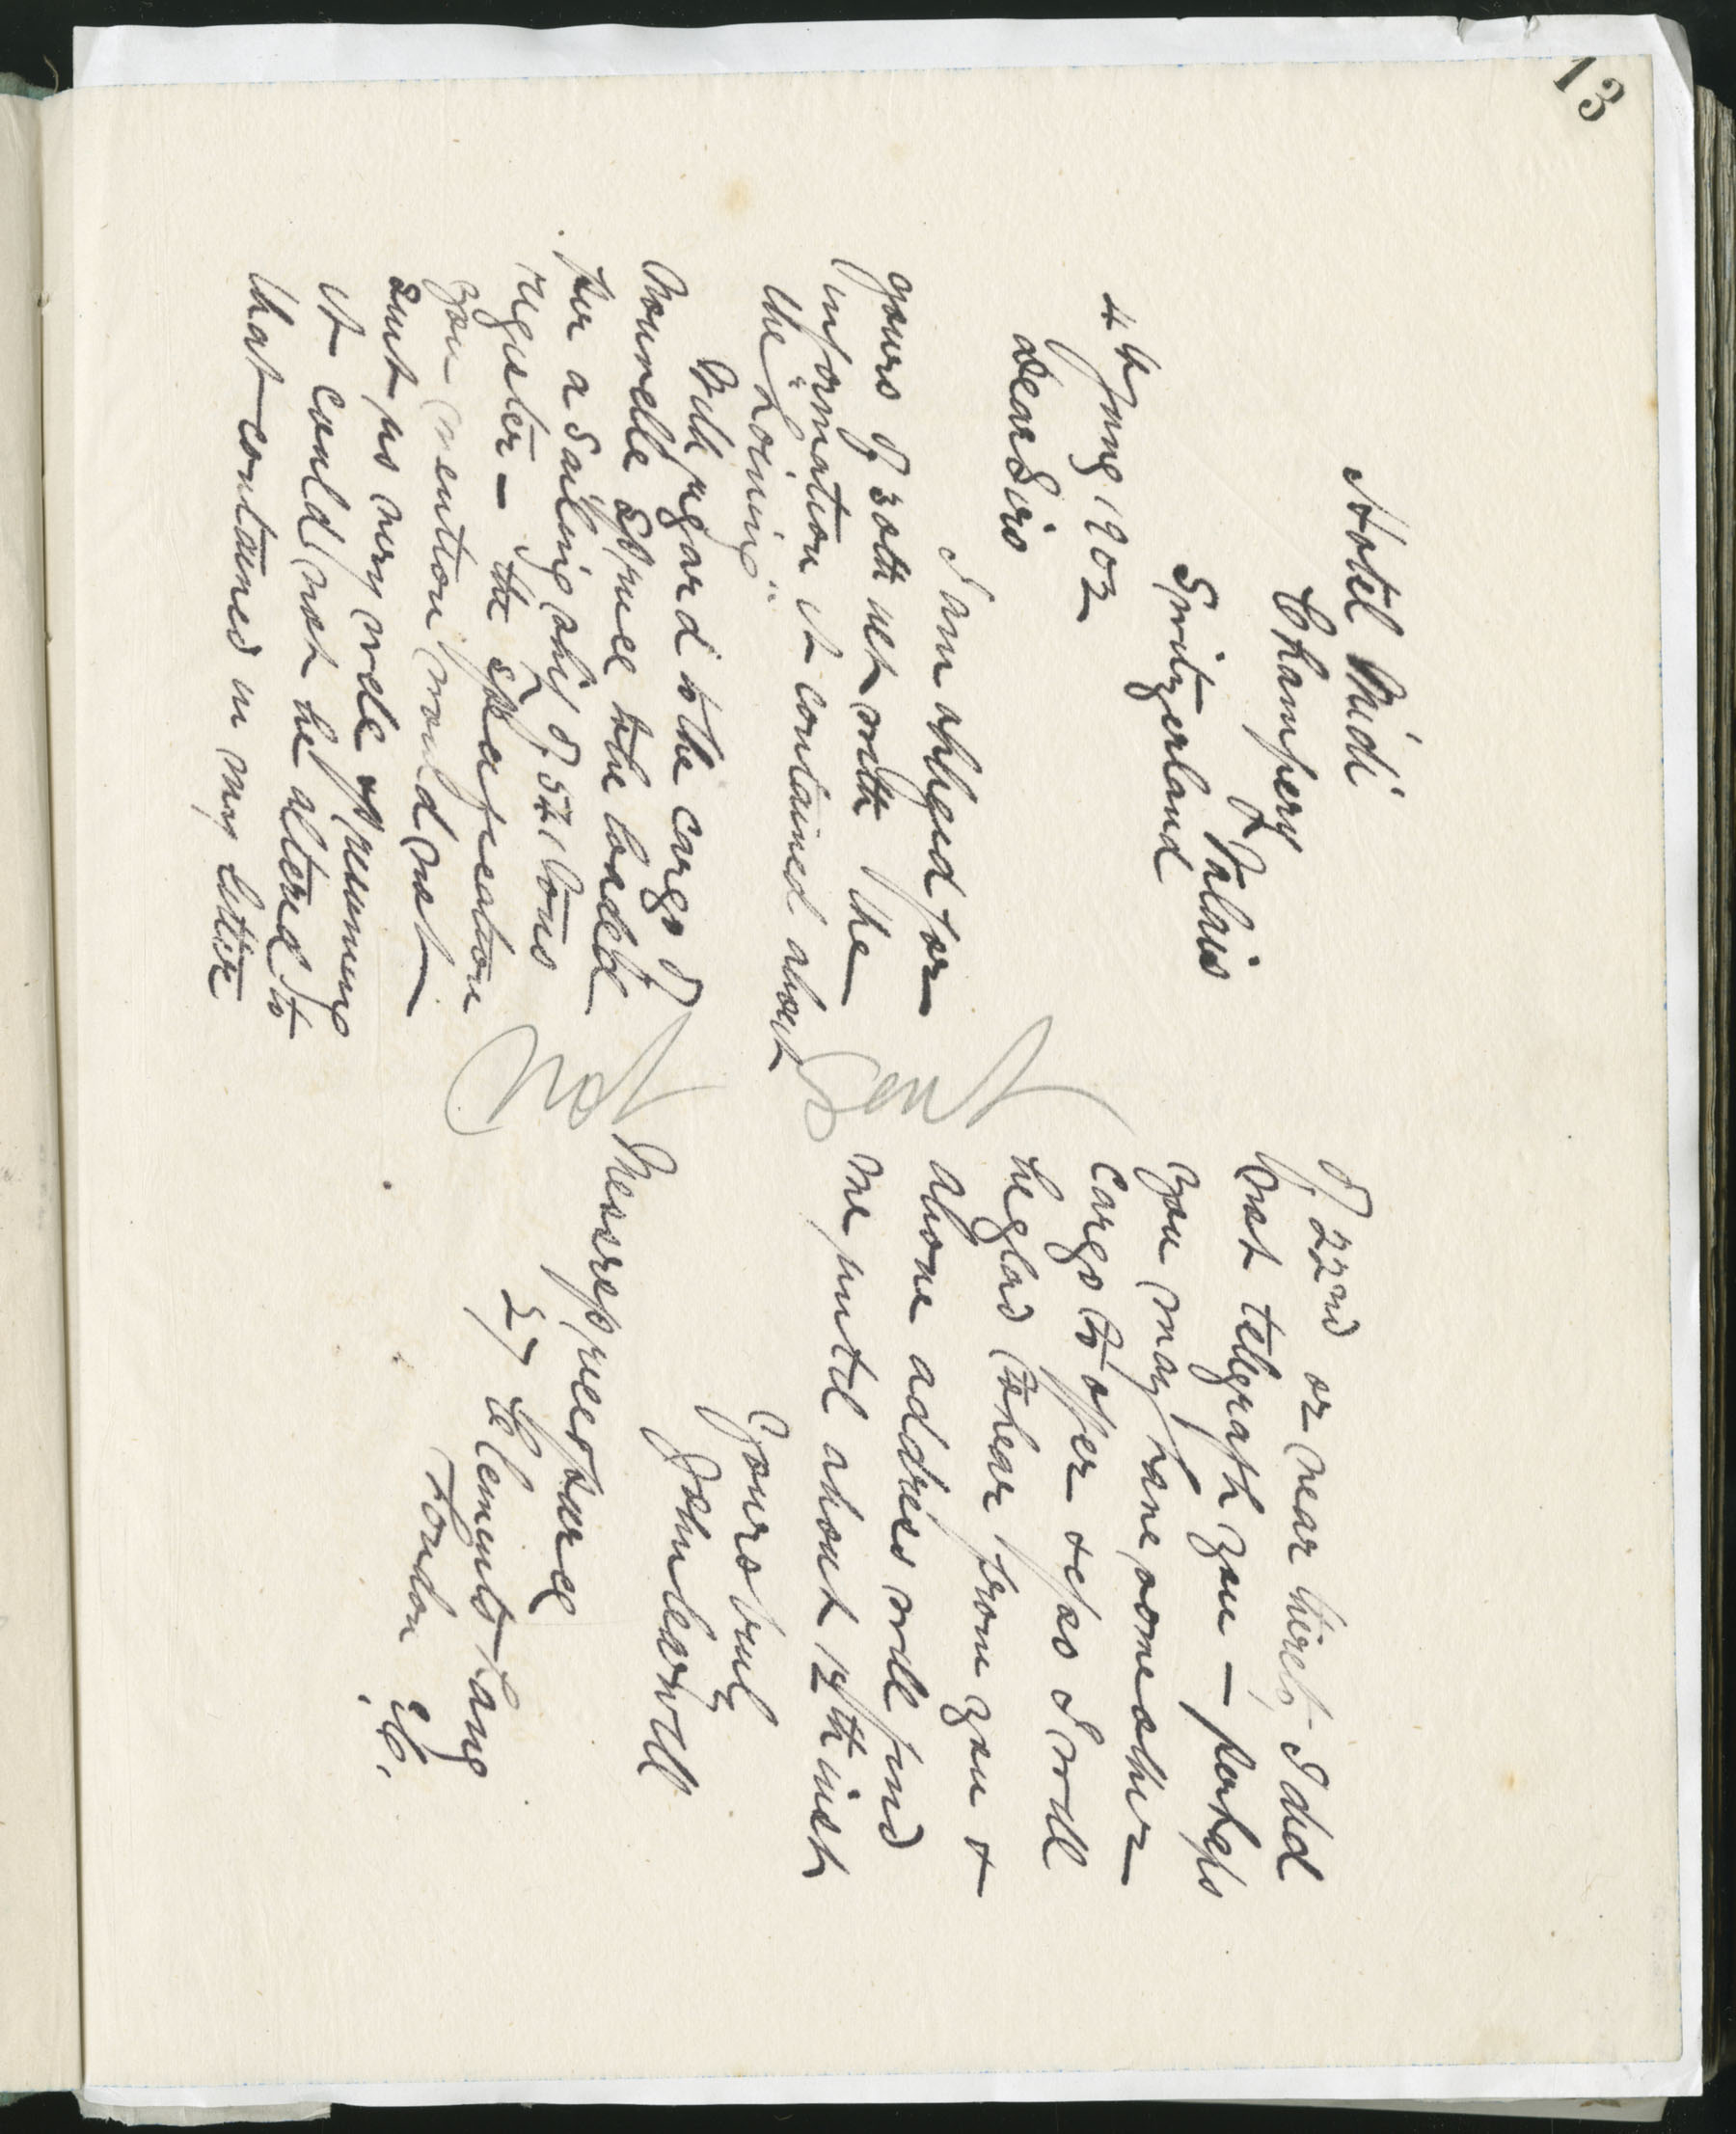 13
Hotel Midi
Champery
Valais
Switzerland
4th July 1902
Dear Sirs
I am obliged for
yours of 30th ult with the
information it contained about
the "Loining"
With regard to the cargo of
Spruce to be loaded
per a Sailing ship of 541 tons
register — the specification
you mention would not
suit us very well & presuming
it could not be altered to
that contained in my letter
of 22nd or near thereto, I did
not telegraph you — perhaps
you may have some other
cargo to offer & if so I will
be glad to hear from you &
above address will find
me until about 14th inst
Yours truly
John Cardwell
Messrs Price & Pierce
27 Clements Lane
London E.C.
Not Sent